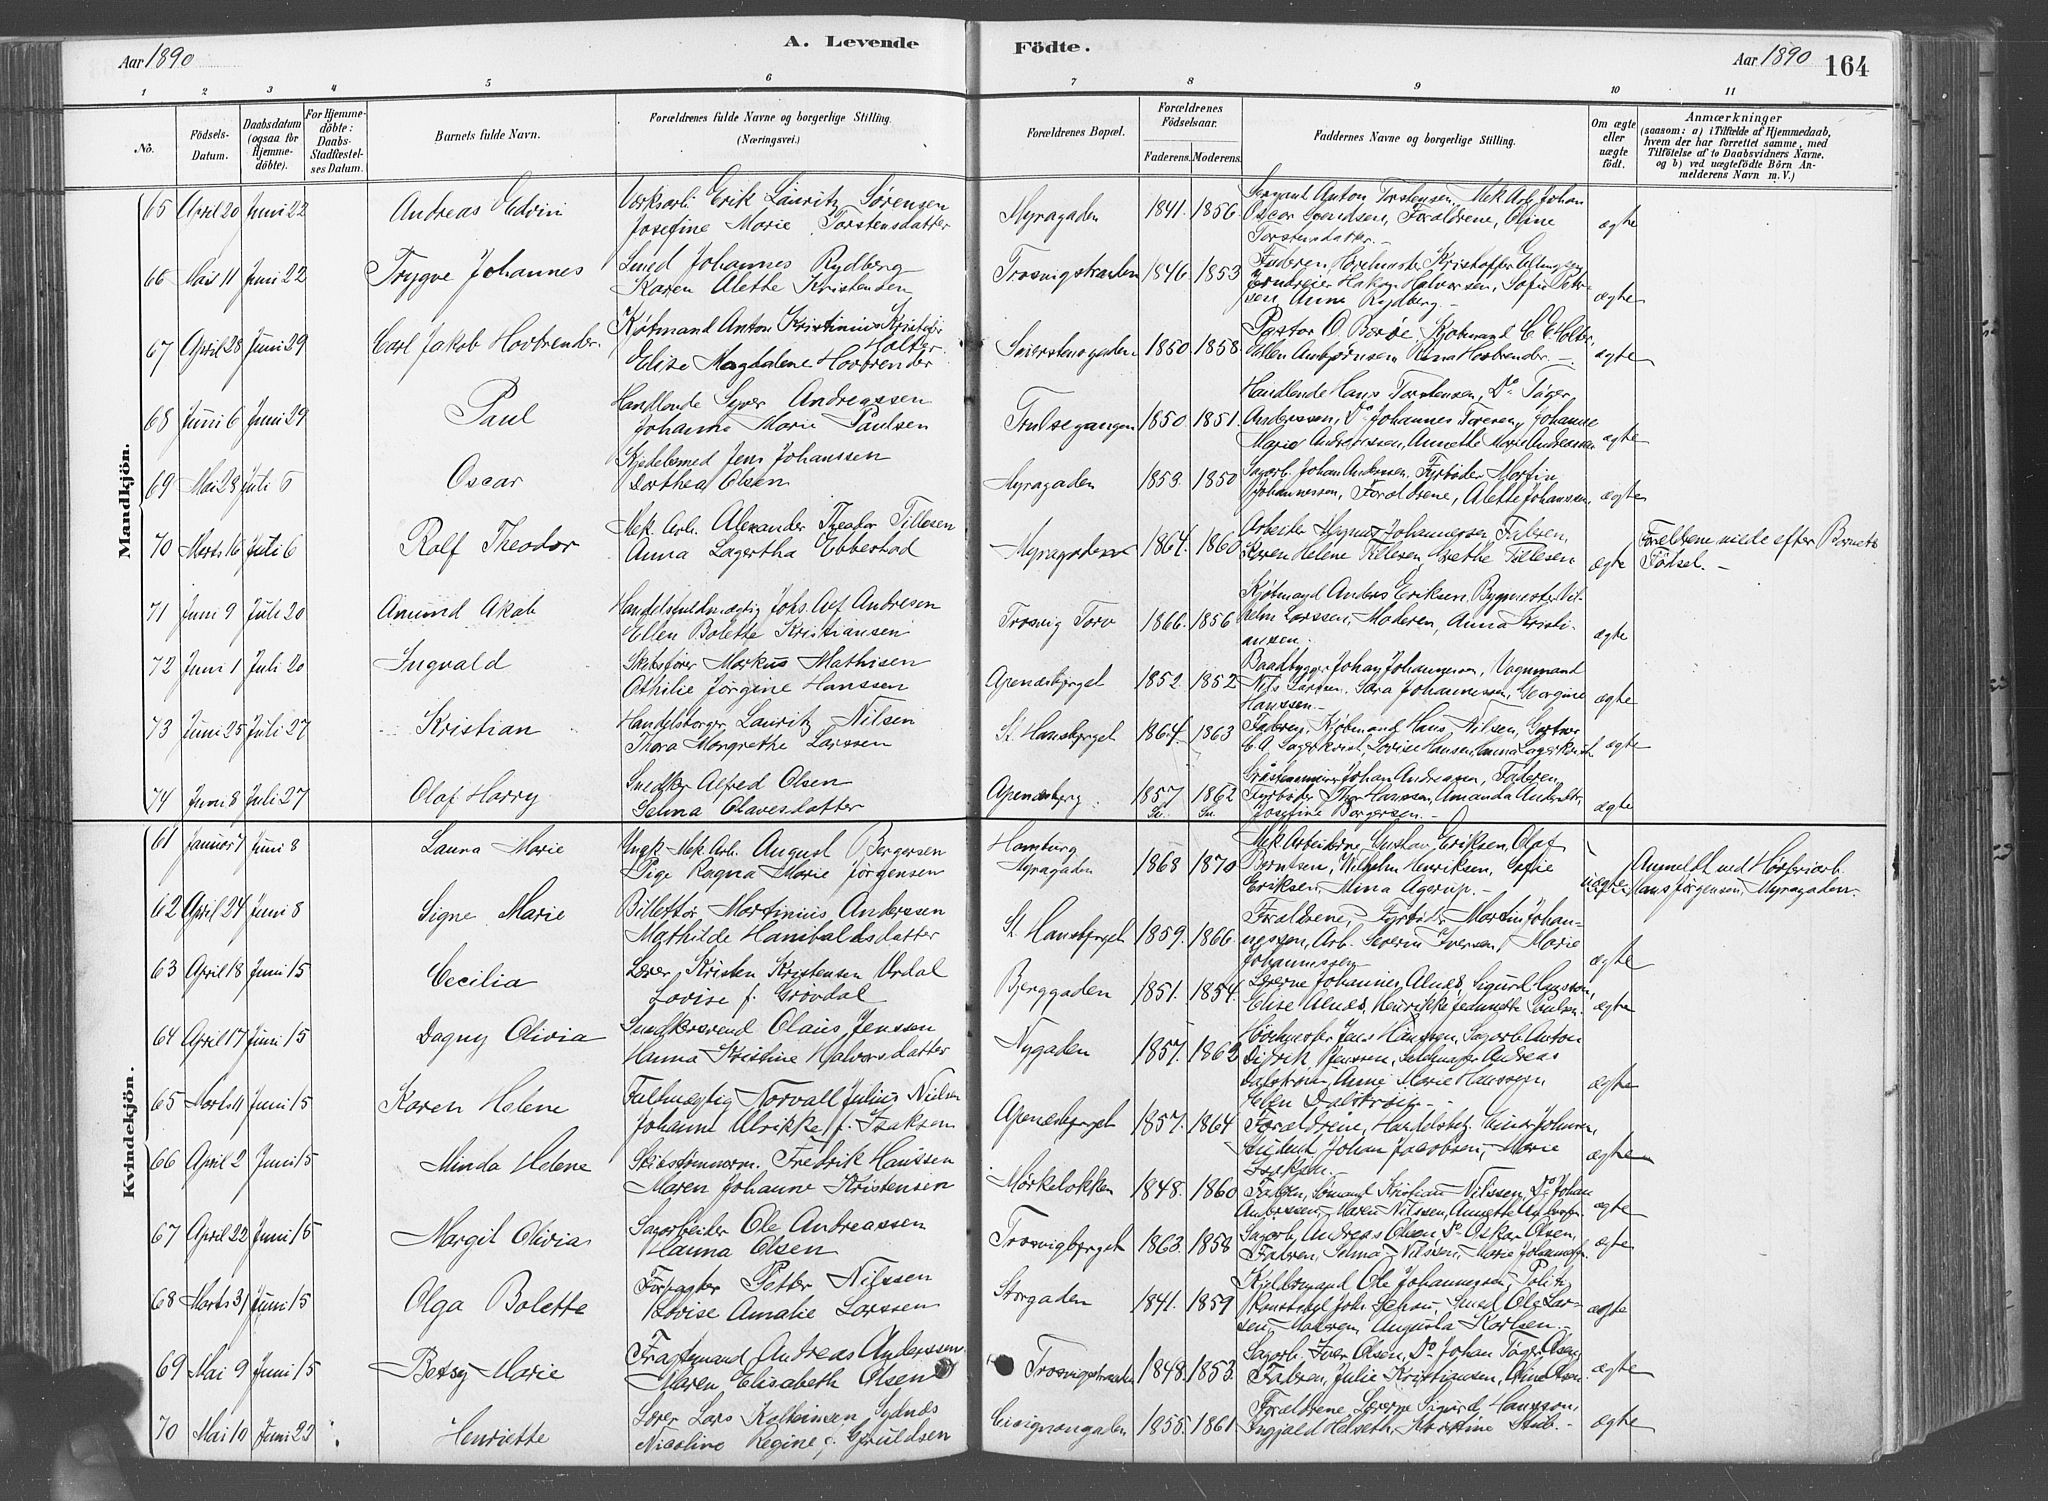 Aar 1890
A. Levende
Födte.
Aar 1890
164
1 2 3 4 5 6 7 8 9 10 11
No.
Födsels-
Datum.
Daabsdatum
(ogsaa for
Hjemme-
döbte).
For Hjemme-
döbte:
Daabs-
Stadfæstel-
ses Datum.
Barnets fulde Navn.
Forældrenes fulde Navne og borgerlige Stilling.
(Næringsvei.)
Forældrenes Bopæl.
Forældrenes
Födselsaar.
Faderens.
Moderens.
Faddernes Navne og borgerlige Stilling.
Om ægte
eller
uægte
födt.
Anmærkninger
(saasom: a) i Tilfælde af Hjemmedaab,
hvem der har forrettet samme, med
Tilföielse af to Daabsvidners Navne,
og b) ved uægtefödte Börn An-
melderens Navn m. V.)
Mandkjön.
65 April 20 Juni 22 Andreas Edvin
Værksarb. Erik Lauritz Sørensen
Josefine Marie Torstensdatter
Myragaden 1841. 1856
Sergeant Anton Torstensen, Mek Arb. Johan
Oscar Svendsen, Forældrene, Oline
Torstensdatter.
ægte
66 Mai 11 Juni 22 Trygve Johannes
Smed Johannes Rydberg
Karen Alette Kristensen
Trosvigstranden 1846. 1853
Faderen, Kristoffer Ellingsen
Halvorsen, Sofie Peter-
sen, Anna Rydberg.
ægte
67 April 28 Juni 29 Carl Jakob Hovbrender.
Kjøbmand Anton Kristinius Kristofer
Holter
Elise Magdalene Hovbrender
Seierstensgaden 1850 1858.
Pastor O. Barøe, Kjøbmand C. C. Holter,
Ellen Anbjørnsen, Rina Hovbrender.
ægte
68 Juni 6 Juni 29 Paul
Handlende Syver Andreassen
Johanne Marie Paulsen
Trulsegangen 1850 1851.
Handlende Hans Torstensen, Do Tøger
Anderssen, Do Johannes Toresen, Johanne
Marie Andreassen, Annette Marie Andreassen
ægte
69 Mai 28 Juli 6 Oscar
Kjedelsmed Jens Johanssen
Dorthea Olsen
Myragaden 1853. 1850
Sagarb. Johan Andersen, Fyrbøder Martin
Johannessen, Forældrene, Alette Johanssen.
ægte
70 Marts 16 Juli 6 Rolf Theodor
Mek. Arb. Alexander Theodor Tillesen
Anna Lagertha Ebbestad
Myragaden 1864. 1860
Arbeider Magnus Johannessen, Faderen,
Karen Helene Tillesen, Grethe Tillesen
ægte
Forældrene viede efter Barnets
Fødsel.
71 Juni 9 Juli 20 Amund Akab
Handelsfuldmægtig Johs. Alf Andresen
Ellen Bolette Kristiansen
Trosvig Torv 1866. 1856
Kjøbmand Anders Eriksen, Bygmester Vil-
helm Larssen, Moderen, Anna Kristi-
ansen.
ægte
72 Juni 1 Juli 20 Ingvald
Skibsfører Markus Mathisen
Othilie Jørgine Hanssen
Apenæsbjerget 1852. 1852
Baadbygger Johan Johannessen, Vognmand
Nils Larssen, Sara Johannessen, Georgine
Hanssen.
ægte
73 Juni 25 Juli 27 Kristian
Handelsborger Lauritz Nilsen
Thora Margrethe Larssen
St. Hansbjerget 1864. 1863
Faderen, Kjøbmand Hans Nilsen, Gartner
C. A. Lagerkvist, Lovise Hansen, Emma Lagerkvist.
ægte
74 Juni 8 Juli 27 Olaf Harry
Snedker Alfred Olsen
Selma Olavesdatter
Apenæsberg. 1857 1862
Sv. Sv.
Johan Andreassen, Faderen,
Fyrbøder Thor Hanssen, Amanda
Josefine Borgersen.
ægte
Kvindekjön.
61 Januar 7 Juni 8 Laura Marie
Ungk. Mek. Arb. August Borgersen
Pige Ragna Marie Jørgensen
Hamburg
Myragaden 1868 1870
Mek Arbeiderne Gustav Eriksen, Olaf
Berntsen, Wilhelm Henriksen, Sofie
Eriksen, Mina Agerup.
uægte
Anmeldt ved
Hans Jørgensen, Myragaden.
62 April 24 Juni 8 Signe Marie
Billettør Martinius Anderssen
Mathilde Hanibaldsdatter
St. Hansbjerget 1859. 1866.
Forældrene, Fyrbøder Martin Johan-
nessen, Arb. Severin Iversen, Marie
Johannessen
ægte
63 April 18 Juni 15 Cecilia
Lærer Kristen Kristensen Urdal
Lovise f. Grøvdal
Bjerggaden 1851. 1854.
Lærerne Johannes Alnes, Sigurd Hansson,
Elise Alnes, Henrikke
ægte
64 April 17 Juni 15 Dagny Olivia
Snedkersvend Olaus Jenssen
Hanna Kristine Halvorsdatter
Nygaden 1857. 1862
Jens Hanssen, Sagarb. Anton
Didrik Jenssen, Andreas
Dalstrøm, Anne Marie Hanssen,
Ellen Dalstrøm.
ægte
65 Marts 11 Juni 15 Karen Helene
Fuldmægtig Norvall Julius Nielsen
Johanne Ulrikke f. Isaksen
Apenæsbjerget 1857. 1864
Forældrene, Handelsbetj. Einar Johnsen,
Student Johan Jacobsen, Marie
Isaksen.
ægte
66 April 2 Juni 15 Minda Helene
Skibstømmerm. Fredrik Hanssen
Maren Johanne Kristensen
Mørkeløkken 1848. 1860
Faderen, Sømand Kristian Nilssen, Do Johan
Andersen, Maren Nilssen, Annette
ægte
67 April 22 Juni 15 Margit Olivia
Sagarbeider Ole Andreassen
Hanna Olsen
Trosvigbjerget 1863. 1858
Sagarb. Andreas Olsen, Do Oskar Olsen,
Faderen, Selma Nilssen, Marie
ægte
68 Marts 31 Juni 15 Olga Bolette
Forpagter Petter Nilssen
Lovise Amalie Larssen
Storgaden 1841. 1859
Ole Johannessen, Politi-
konstabel Joh. Schou, Smed Ole Lar-
sen, Moderen, Augusta Karlsen.
ægte
69 Mai 9 Juni 15 Betsy Marie
Fragtemand Andreas Anderssen
Maren Elisabeth Olsen
Trosvigstranden 1848. 1853.
Sagarb. Iver Olsen, Do Johan Tøger Olsen,
Faderen, Julie Kristiansen, Oline Olsen.
ægte
70 Mai 10 Juni 23 Henriette
Lærer Lars Kolbeinsen Sydnæs
Nicoline Regine f. Gjruldsen
Cicignongaden 1855. 1861
Forældrene, Lærerne Sigurd Hansson,
Ingjald Helseth, Martine Stub.
ægte